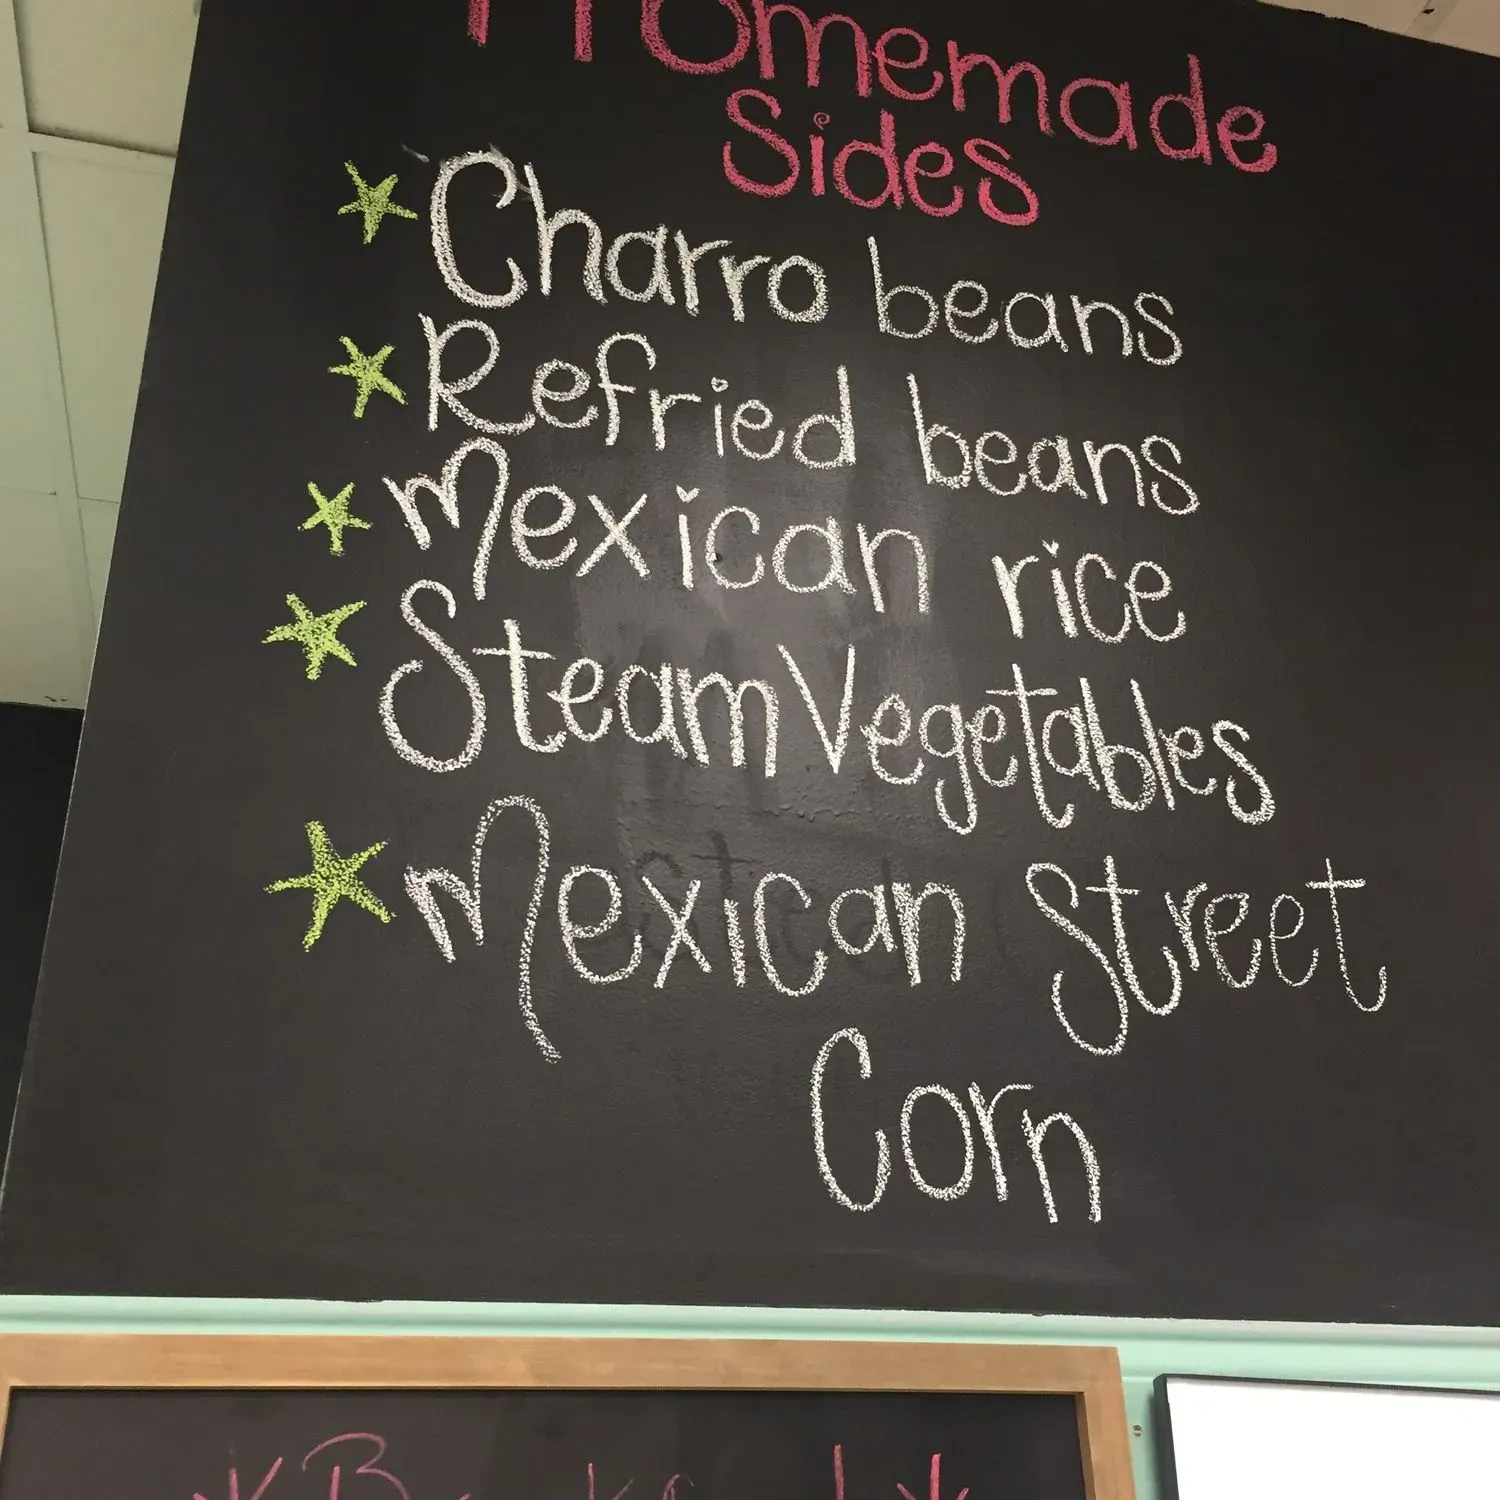 Homemade
Sides
Charro beans
Refried beans
Mexican rice
Steam Vegetables
Mexican Street
Corn